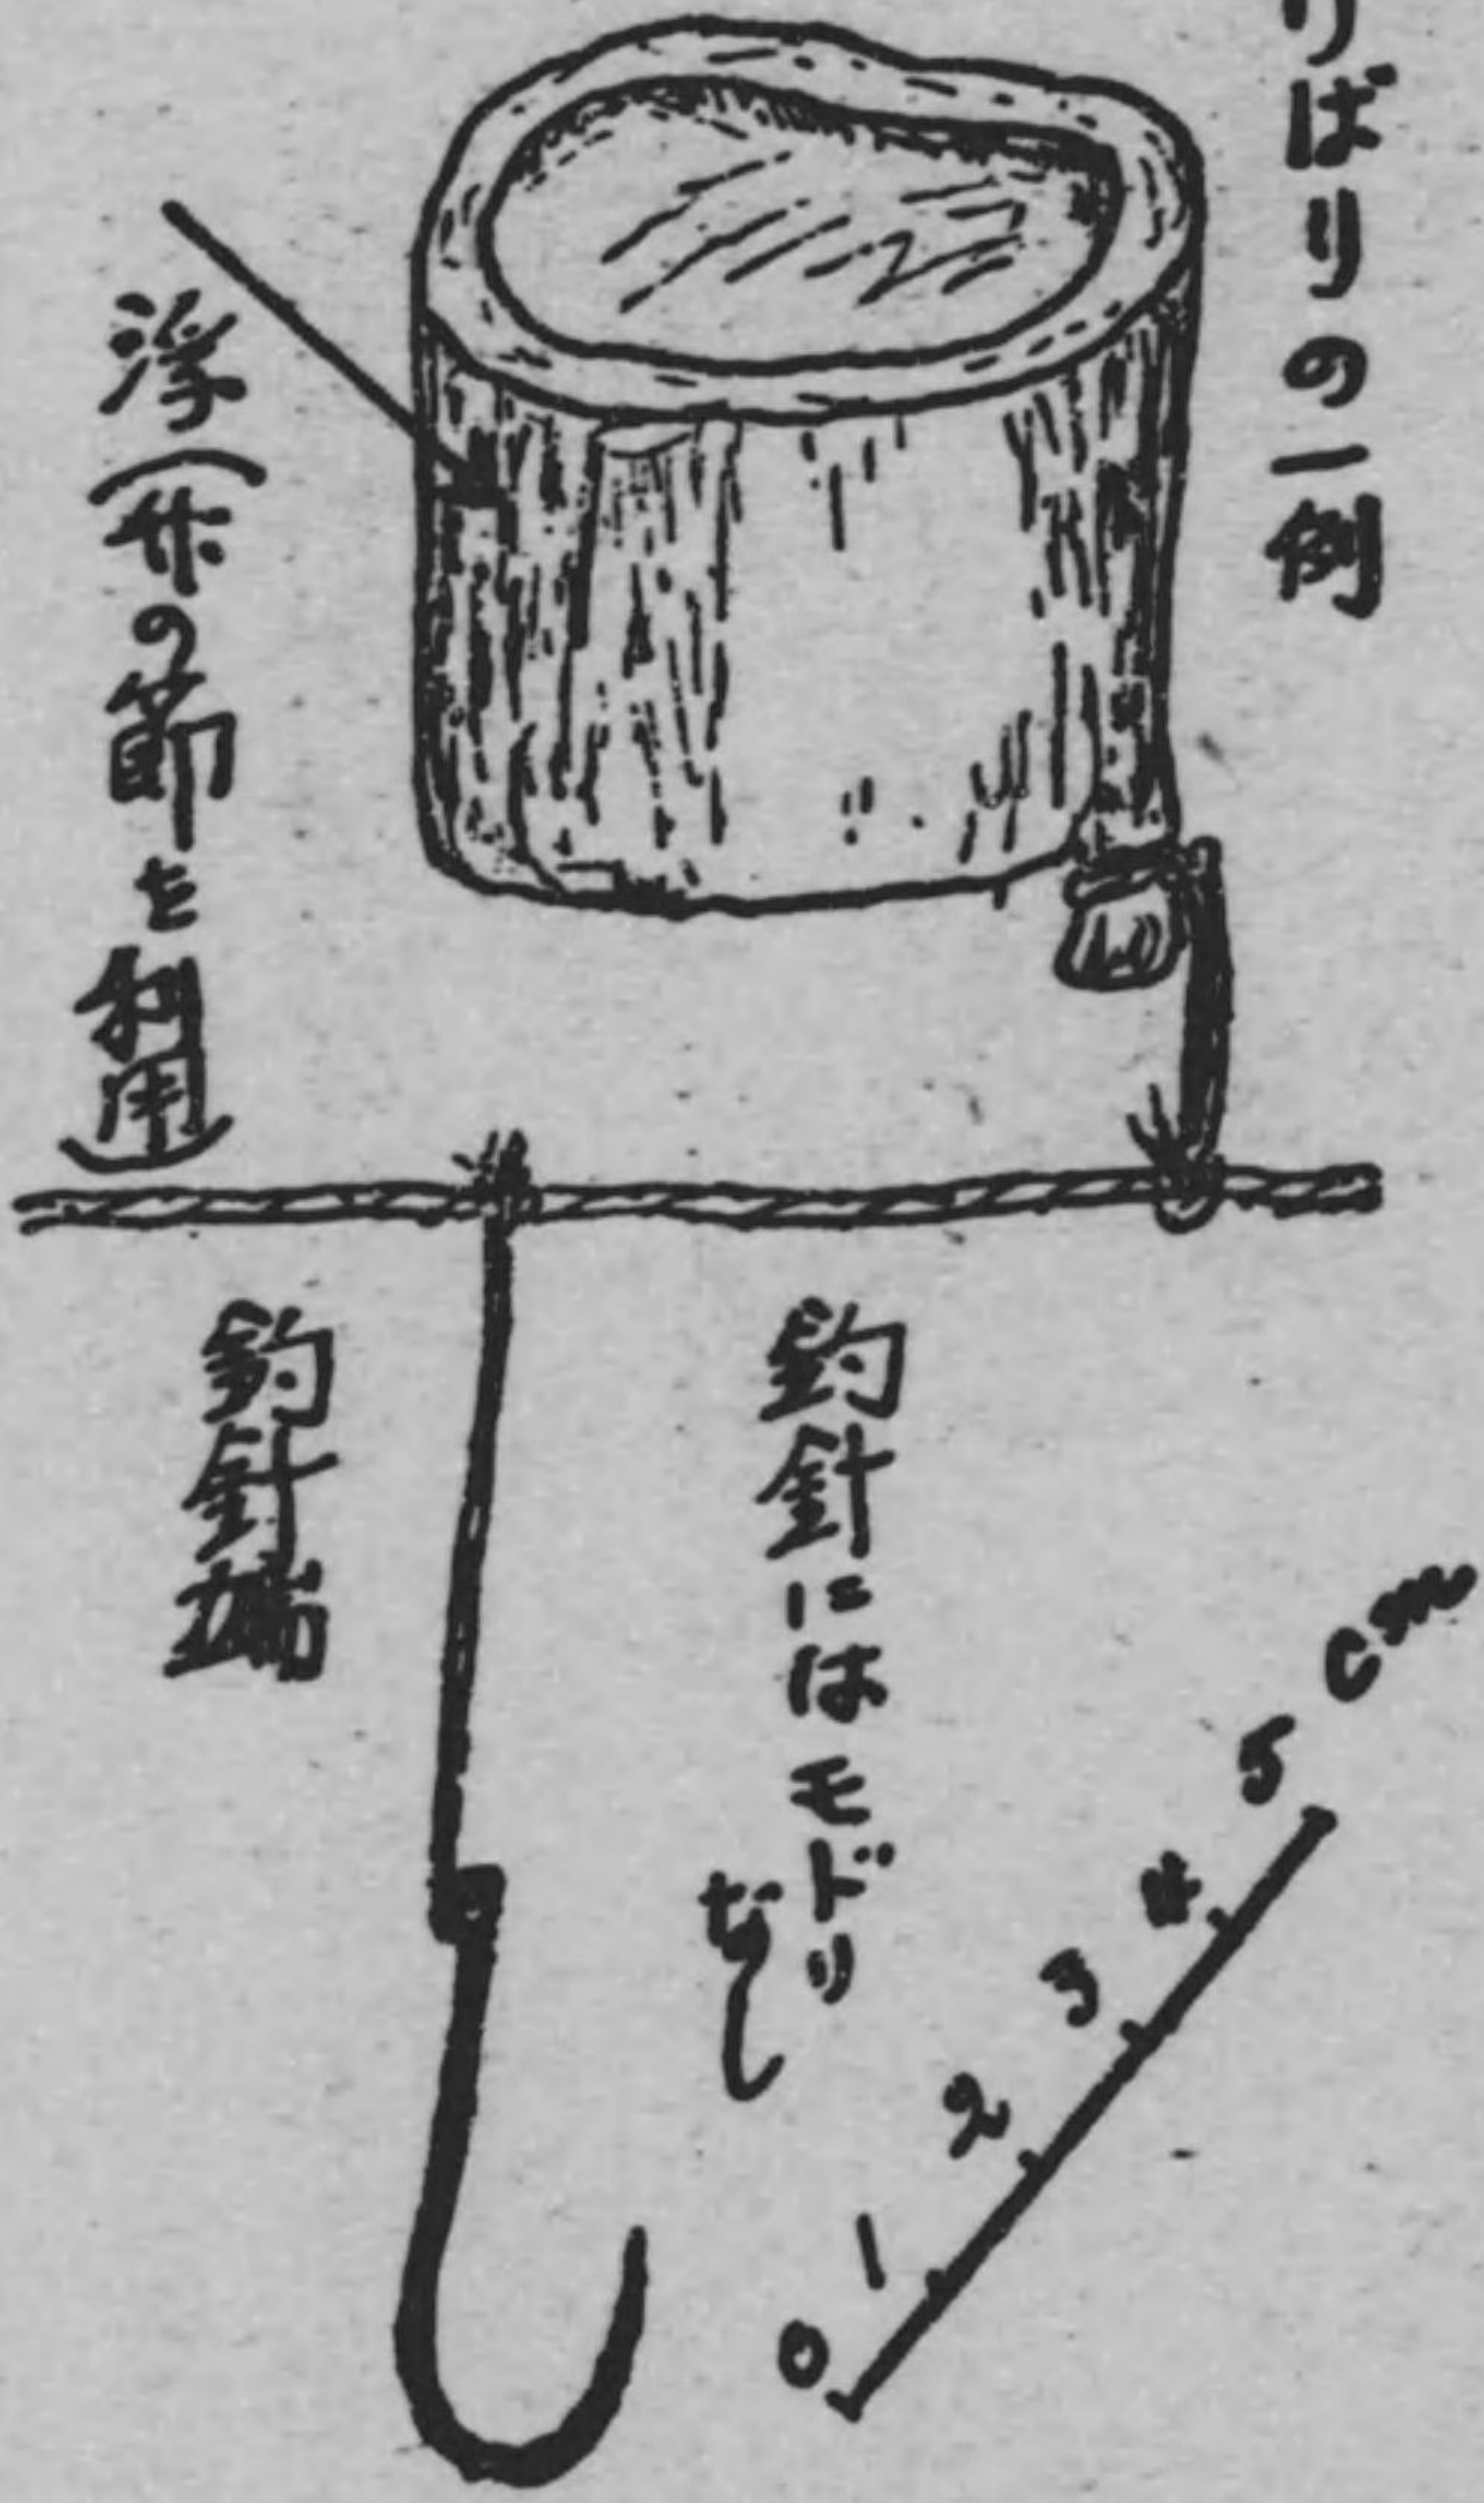 りばりの一例
浮(竹の節を利用)
釣針には モドリ
なし
釣針端
0 1 2 3 4 5 cm